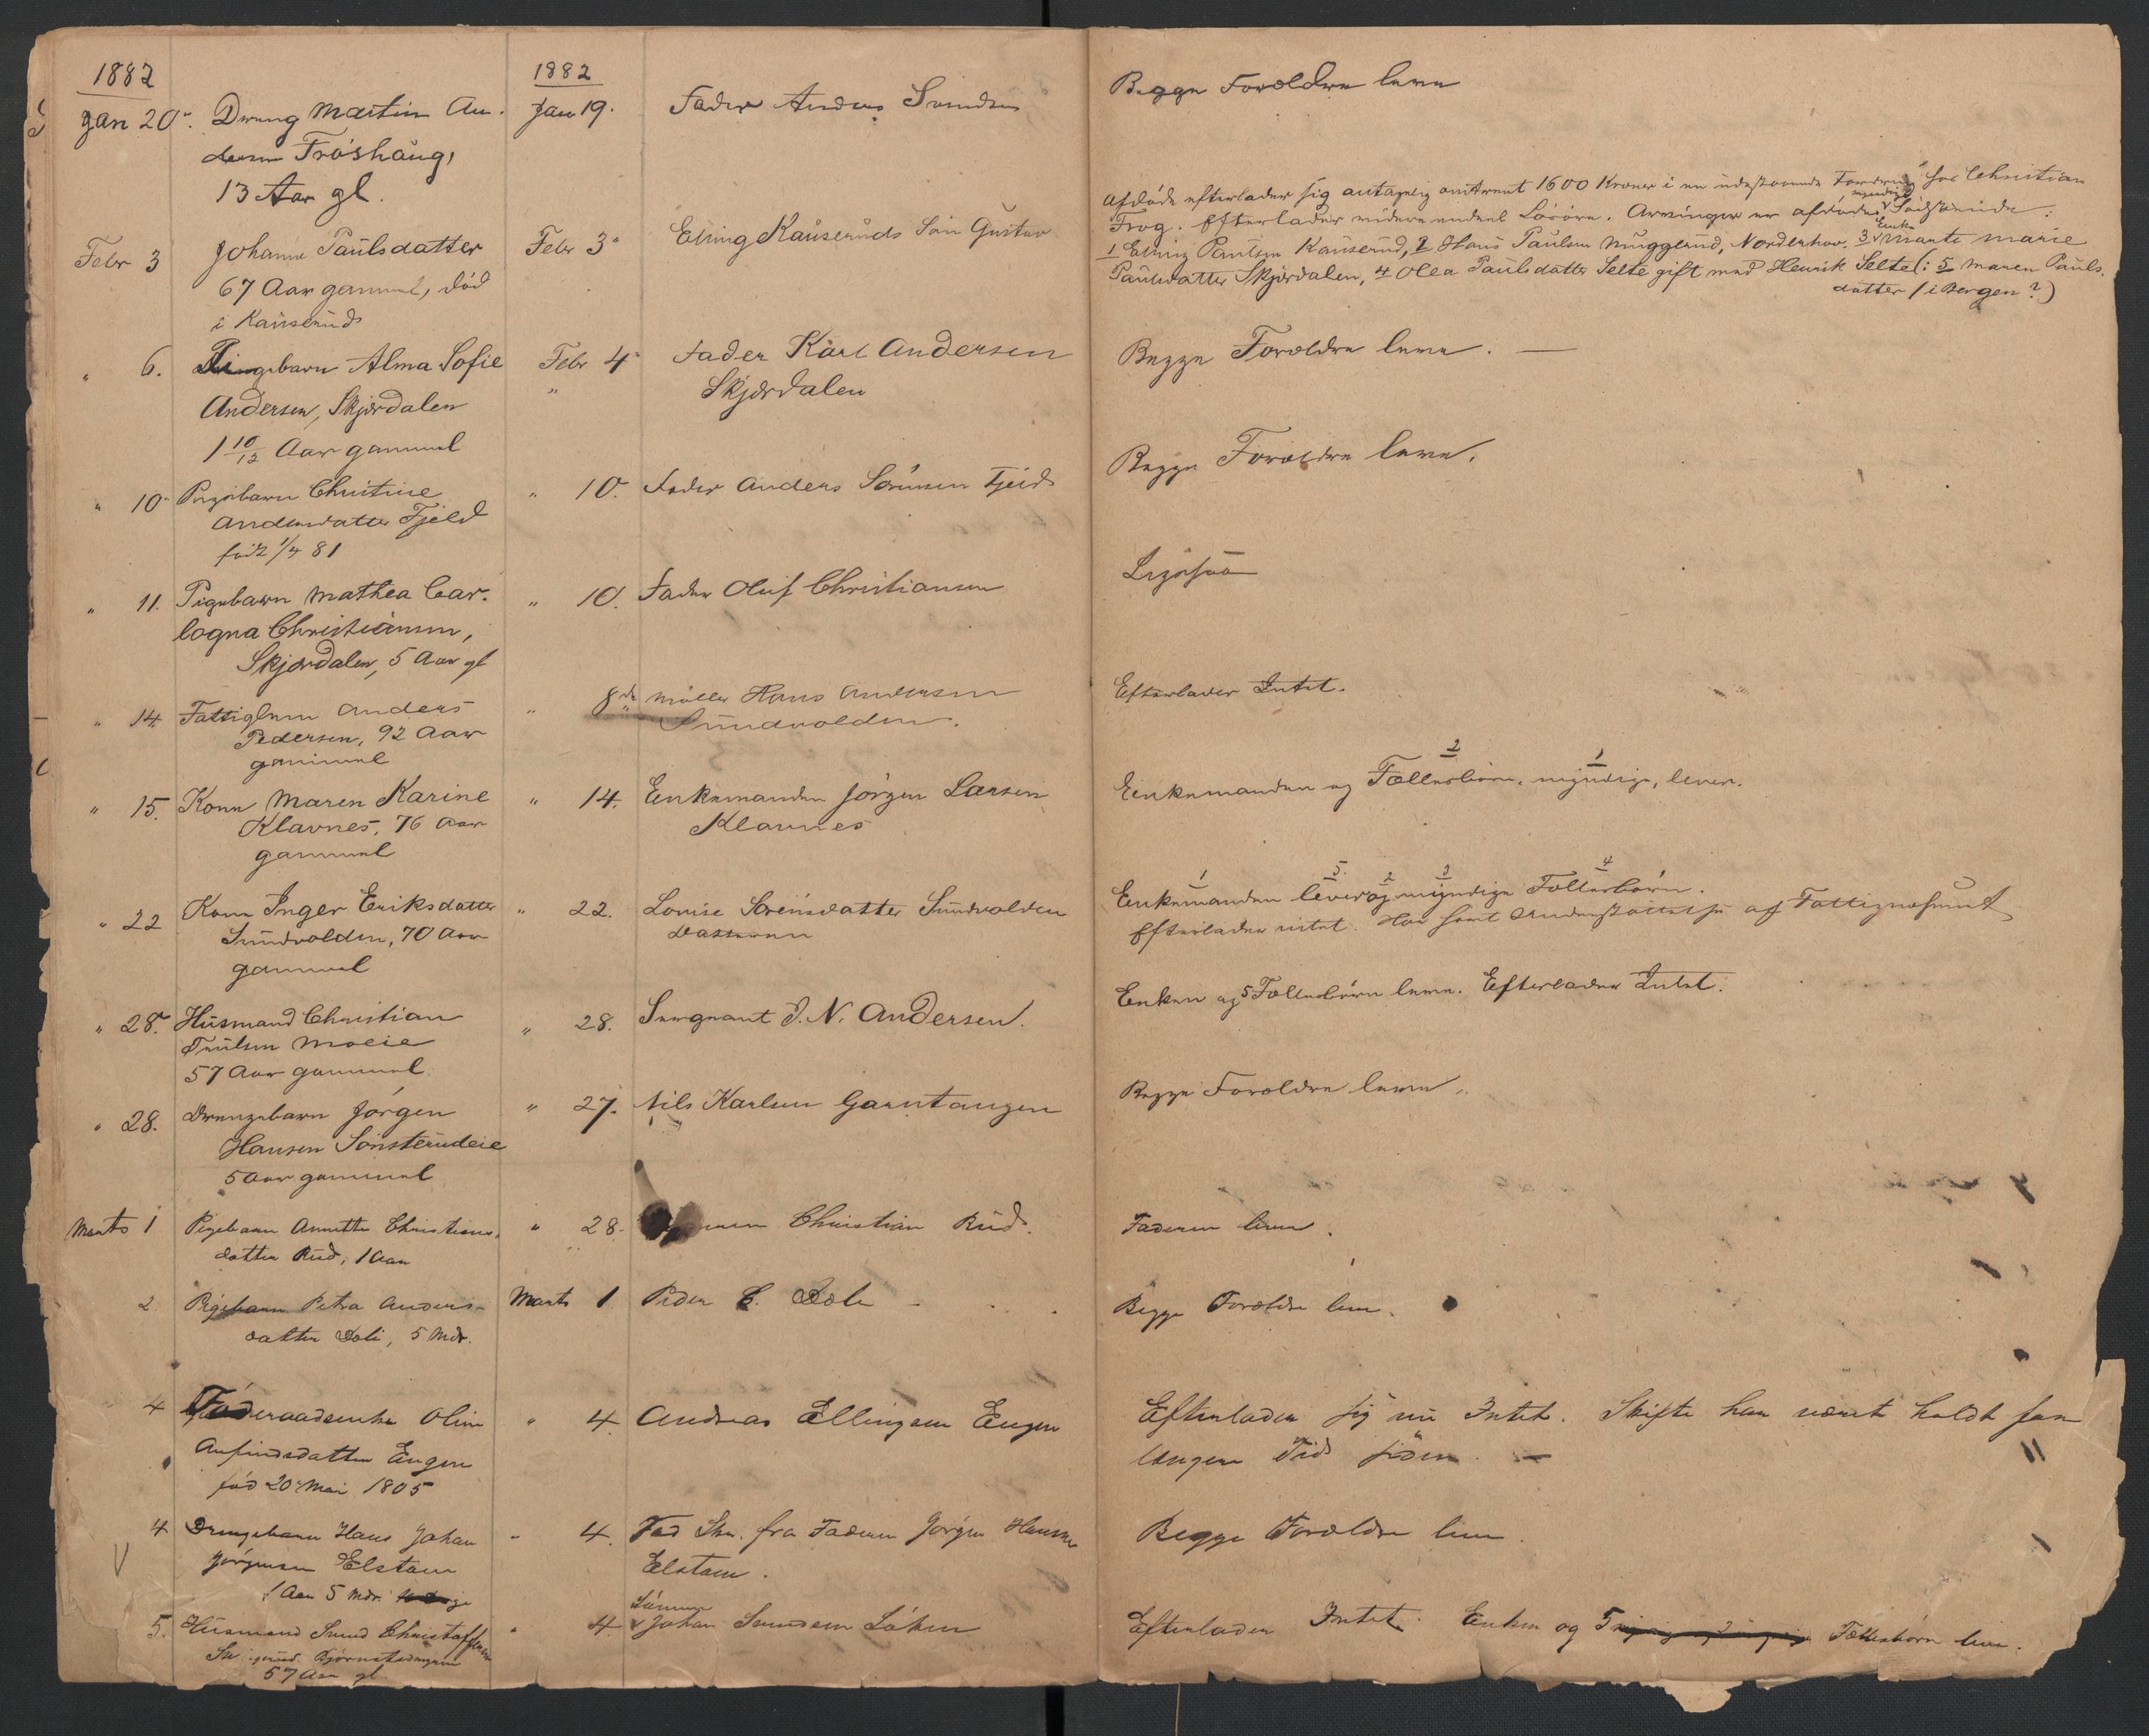 1882
1882
Jan 20. Dreng Martin An-
dersen Fröshaug,
13 Aar gl.
Jan 19.
Fader Anders Svendsen
Begge Forældre leve
Febr 3
Johanne Paulsdatter
67 Aar gammel, død
i Kauserud
Febr 3
Elling Kauseruds Søn Gustav
Afdøde efterlader sig antagelig omtrent 1600 Kroner i en udestaaende Fordring hos Christian
Frog. Efterlader videre endeel Lösöre. Arvinger er afdødes myndige Sødskende:
1 Elling Paulsen Kauserud, 2 Hans Paulsen Muggerud, Norderhov. 3 Enke Marte Marie
Paulsdatter Skjørdalen, 4 Olea Paulsdatter Selte gift med Henrik Selte (: 5 Maren Pauls-
datter (i Bergen ?)
" 6. Pigebarn Alma Sofie
Andersen, Skjørdalen
1 10/12 Aar gammel
Febr 4
"
Fader Karl Andersen
Skjørdalen
Begge Forældre leve. —
" 10 Pigebarn Christine
Andersdatter Fjeld
født 1/4 81
" 10. Fader Anders Sørensen Fjeld
Begge Forældre leve.
" 11. Pigebarn Mathea Car-
logna Christiansen,
Skjørdalen, 5 Aar gl
" 10. Fader Oluf Christiansen
Ligesaa
" 14 Fattiglem Anders
Pedersen, 92 Aar
gammel
" 8de Møller Hans Andersen
Sundvolden.
Efterlader Intet.
" 15. Kone Maren Karine
Klavnes, 76 Aar
gammel
" 14. Enkemanden Jørgen Larsen
Klavnes
2 1
Enkemanden og Fællesbørn, myndige, lever.
" 22 Kone Inger Eriksdatter
Sundvolden, 70 Aar
gammel
" 22. Lovise Sørensdatter Sundvolden
Datteren
1 5. 2 3 4
Enkemanden lever og myndige Fællesbørn.
Efterlader intet. Har havt Understøttelse af Fattigvæsenet
" 28. Husmand Christian
Trulsen Moeie
57 Aar gammel.
" 28. Sergeant J. N. Andersen.
Enken og 5 Fællesbørn leve. Efterlader Intet.
" 28. Drengebarn Jørgen
Hansen Sønsterudeie
5 Aar gammel
" 27. Nils Karlsen Garntangen
Begge Forældre leve.
Marts 1 Pigebarn Annette Christians-
datter Rud, 1 Aar
" 28. Christian Rud.
Faderen lever.
2. Pigebarn Petra Anders-
datter Doli, 5 Mdr.
Marts 1. Peder C. Dæli
Begge Forældre leve.
4 Føderaadsenke Oline
Anfindsdatter Engen
fød 20 Mai 1805
" 4. Andreas Ellingsen Engen
Efterlader sig nu Intet. Skifte har været holdt for
længere Tid siden. —
4 Drengebarn Hans Johan
Jørgensen Elstøen
1 Aar 5 Mdr.
V
" 4. Ved Skr. fra Faderen Jørgen Hansen
Elstøen.
Begge Forældre leve.
5. Husmand Svend Christoffersen
Bjørnstadengen
57 Aar gl
" 4. Sønnen
Johan Svendsen Løken
Efterlader Intet. Enken og 5 Fællesbørn leve.